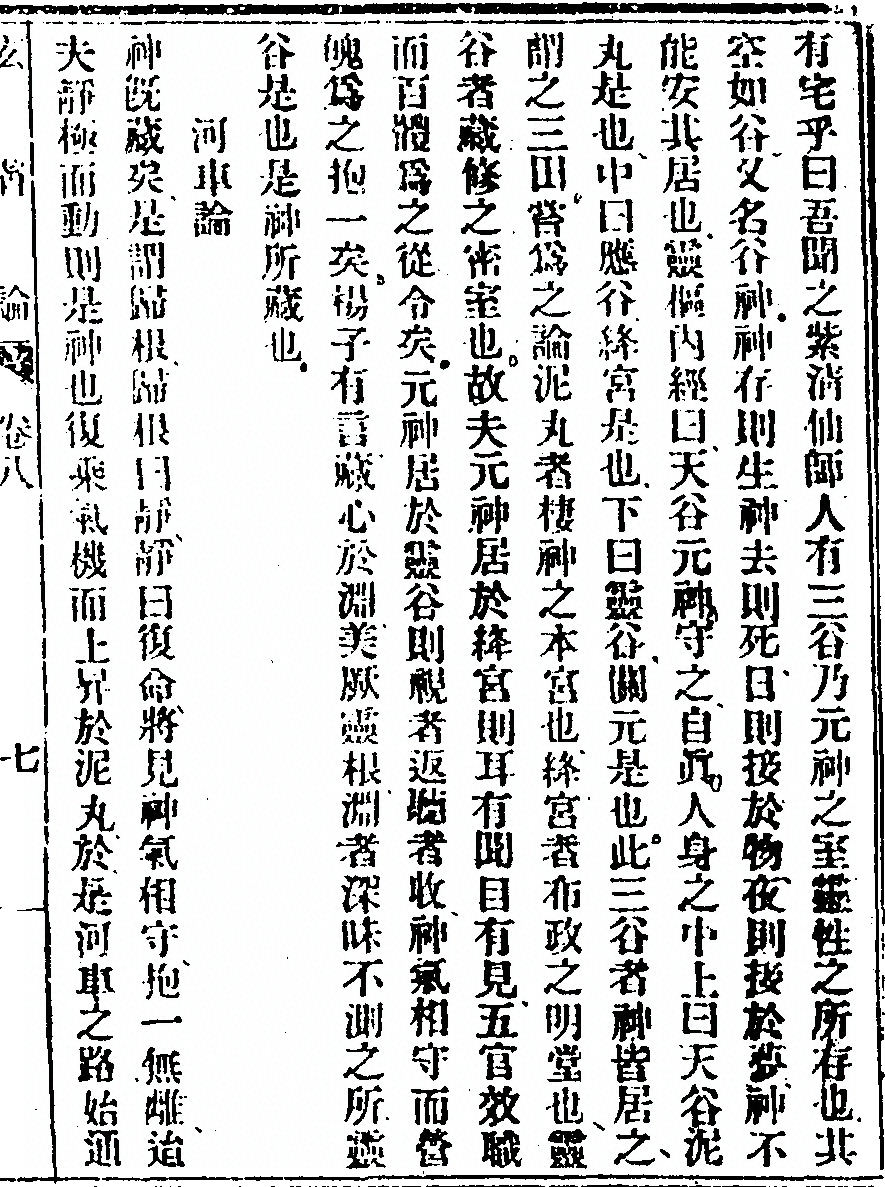 有宅乎曰吾聞之紫清仙師人有三谷乃元神之室靈性之所存也其
空如谷又名谷神神存則生神去則死日則接於物夜則接於夢神不
能安其居也靈樞內經曰天谷元神守之自眞人身之中上曰天谷泥
丸是也中曰應谷絳宮是也下曰靈谷關元是也此三谷者神皆居之
謂之三田嘗爲之論泥丸者棲神之本宮也絳宮者布政之明堂也靈
谷者藏修之密室也故夫元神居於絳宮則耳有聞目有見五官效職
而百體爲之從令矣元神居於靈谷則視者返聽者收神氣相守而營
魄爲之抱一矣楊子有言藏心於淵美厥靈根淵者深昧不測之所靈
谷是也是神所藏也
河車論
神旣藏矣是謂歸根歸根曰靜靜曰復命將見神氣相守抱一無離迨
夫靜極而動則是神也復乘氣機而上昇於泥丸於是河車之路始通
玄 論 卷八 七